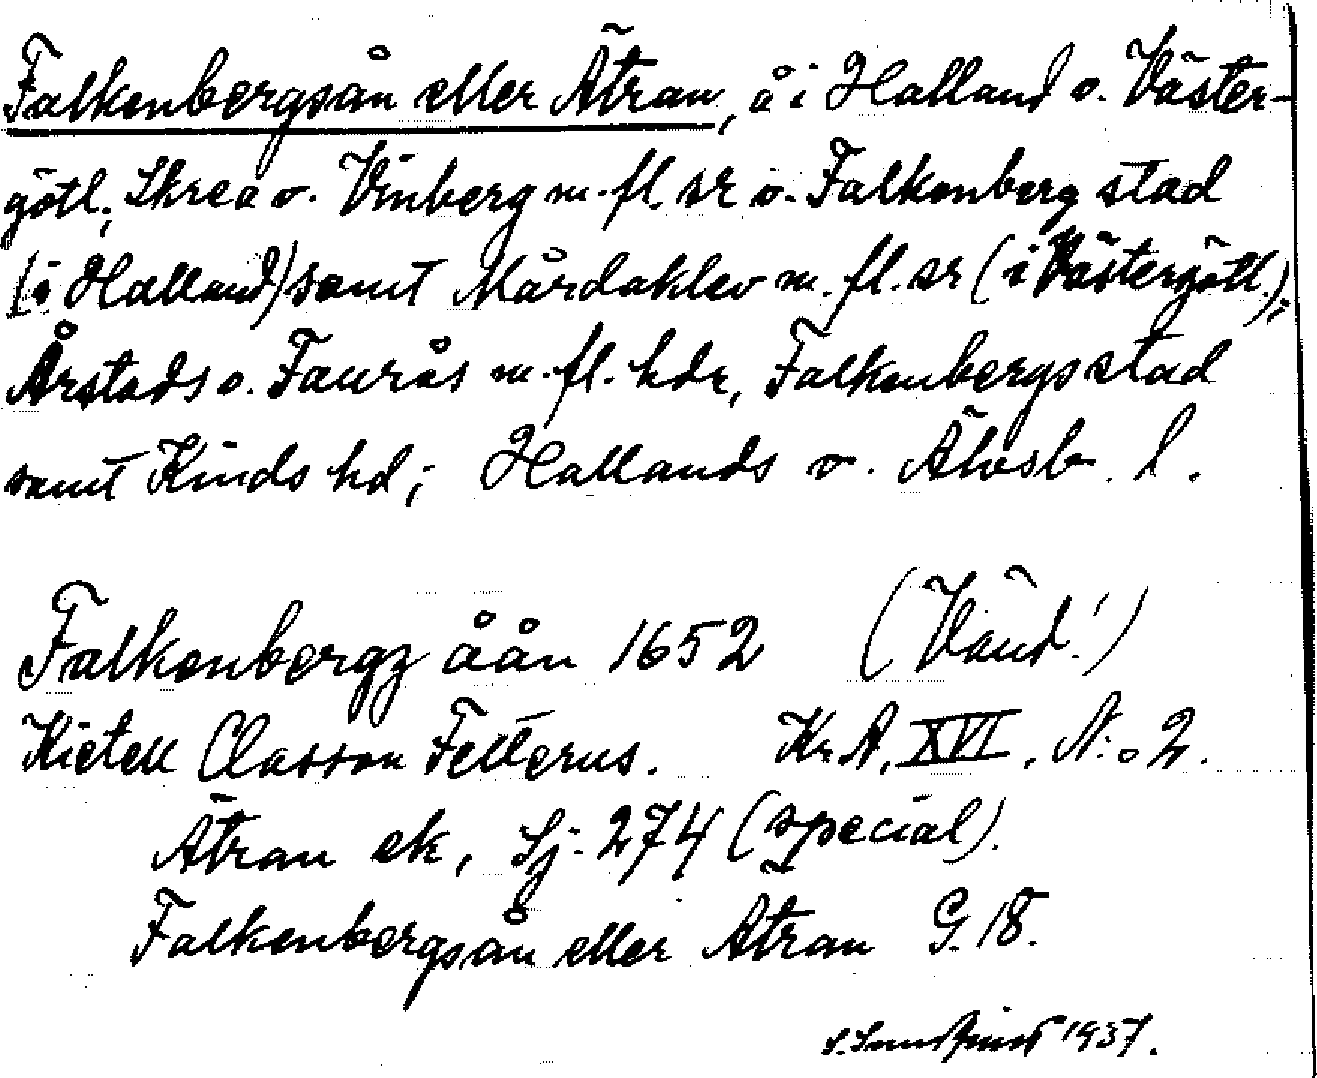 Falkenbergsån eller Ätran, å i Halland o. Väster-
götl.; Skrea o. Vinberg m. fl. sr o. Falkenberg stad
(i Halland) samt Mårdaklev m. fl. sr (i Västergötl.);
Årstads o. Faurås m. fl. hdr, Falkenbergs stad
samt Kinds hd; Hallands o. Älvsb. l.
Falkenbergz åån 1652 (Vänd!)
Kietell Classon Felterus. Kr. A. XVI. N:o 2.
Ätran ek, Sj. 274 (special).
Falkenbergsån eller Ätran G. 18.
S. 1937.